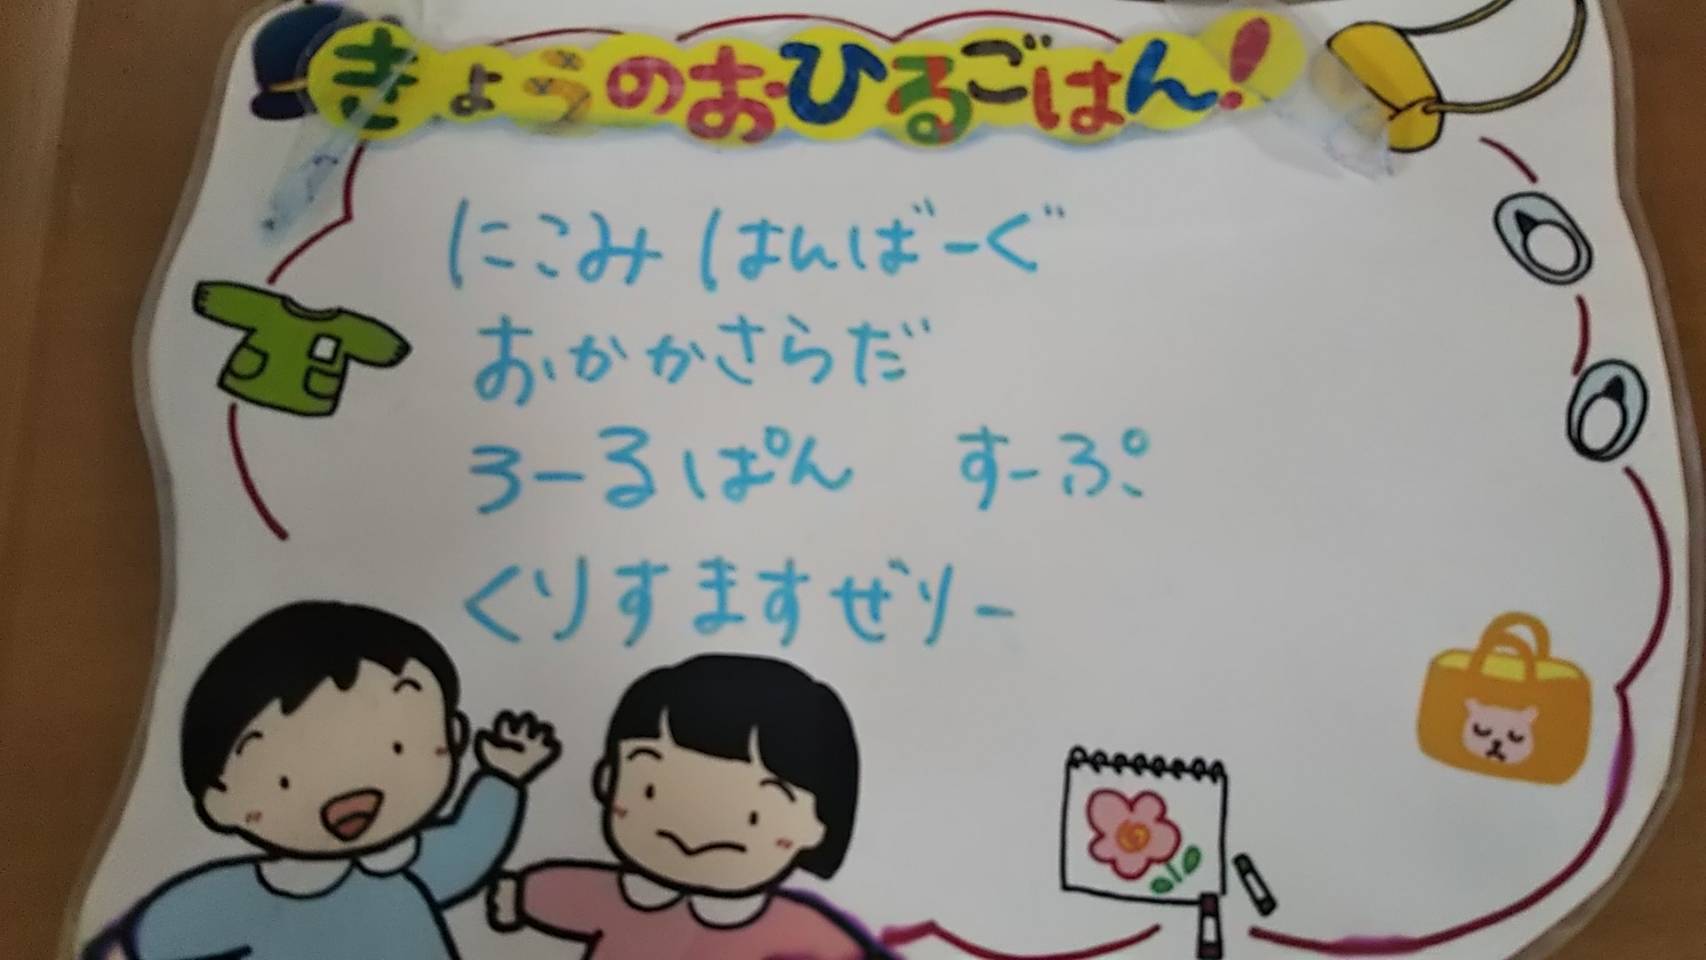 きょうのおひるごはん!
にこみ はんばーぐ
おかかさらだ
ろーるぱん すーぷ
くりすますぜりー